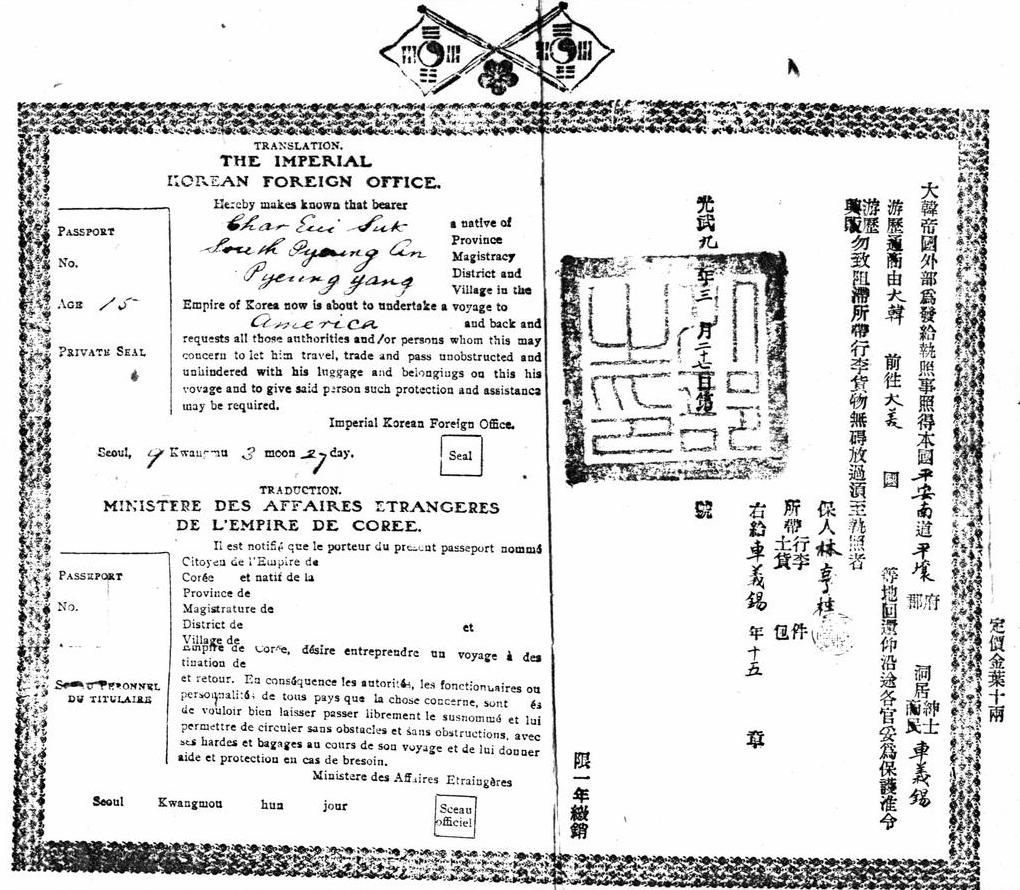 TRANSLATION.
THE IMPERIAL
KOREAN FOREIGN OFFICE.
Hereby makes known that bearer
PASSPORT
No.
AGE 15
PRIVATE SEAL
Char Eui Suk
South Pyeung An
Pyeung yang
a native of
Province
Magistracy
District and
Village in the
Empire of Korea now is about to undertake a voyage to
America and back and
requests all those authorities and/or persons whom this may
concern to let him travel, trade and pass unobstructed and
unhindered with his luggage and belongings on this his
voyage and to give said person such protection and assistance
may be required.
Imperial Korean Foreign Office.
Seoul, 9 Kwangmu 3 moon 27 day.
Seal
TRADUCTION.
MINISTERE DES AFFAIRES ETRANGERES
DE L'EMPIRE DE COREE.
PASSEPORT
No.
SCEAU PERONNEL
DU TITULAIRE
Il est notifié que le porteur du present passeport nommé
Citoyen de l'Empire de
Corée et natif de la
Province de
Magistrature de
District de et
Village de
Empire de Corée, désire entreprendre un voyage à des
tination de
et retour. En conséquence les autorités, les fonctionnaires ou
personnalités de tous pays que la chose concerne, sont és
de vouloir bien laisser passer librement le susnommé et lui
permettre de circuler sans obstacles et sans obstructions, avec
ses hardes et bagages au cours de son voyage et de lui donner
aide et protection en cas de bresoin.
Ministere des Affaires Etraingères
Seoul Kwangmou hun jour
Sceau
officiel
大韓帝國外部爲發給執照事照得本國平安南道平壤府郡洞居紳士商民車義錫
游歷通商由大韓前往大美國等地回還仰沿途各官妥爲保護准令
游歷興販勿致阻滯所帶行李貨物無碍放過須至執照者
保人林亨桂
所帶行李土貨包件
右給車義錫年十五章
光武九年三月二十七日給號
限一年繳銷
定價金葉十兩